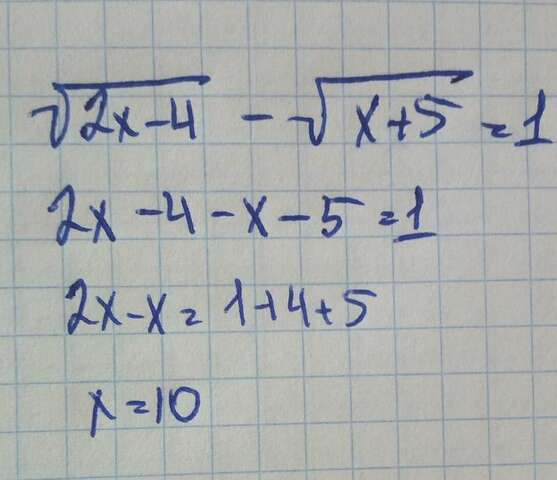 √(2x-4) - √(x+5) = 1
2x - 4 - x - 5 = 1
2x - x = 1 + 4 + 5
x = 10